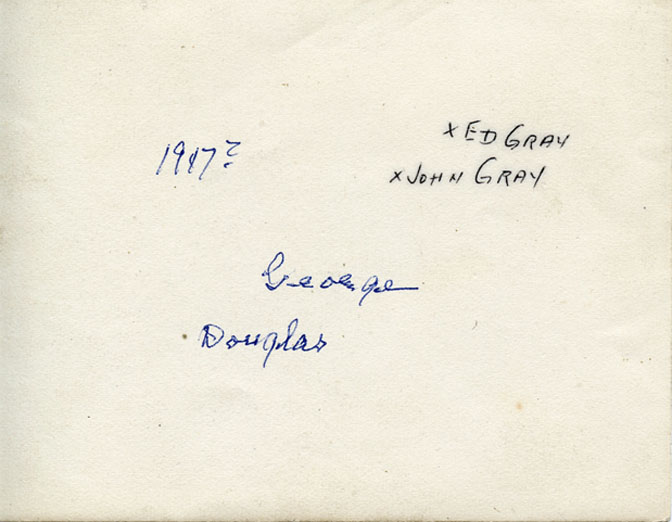 1947?
x ED GRAY
x JOHN GRAY
George
Douglas